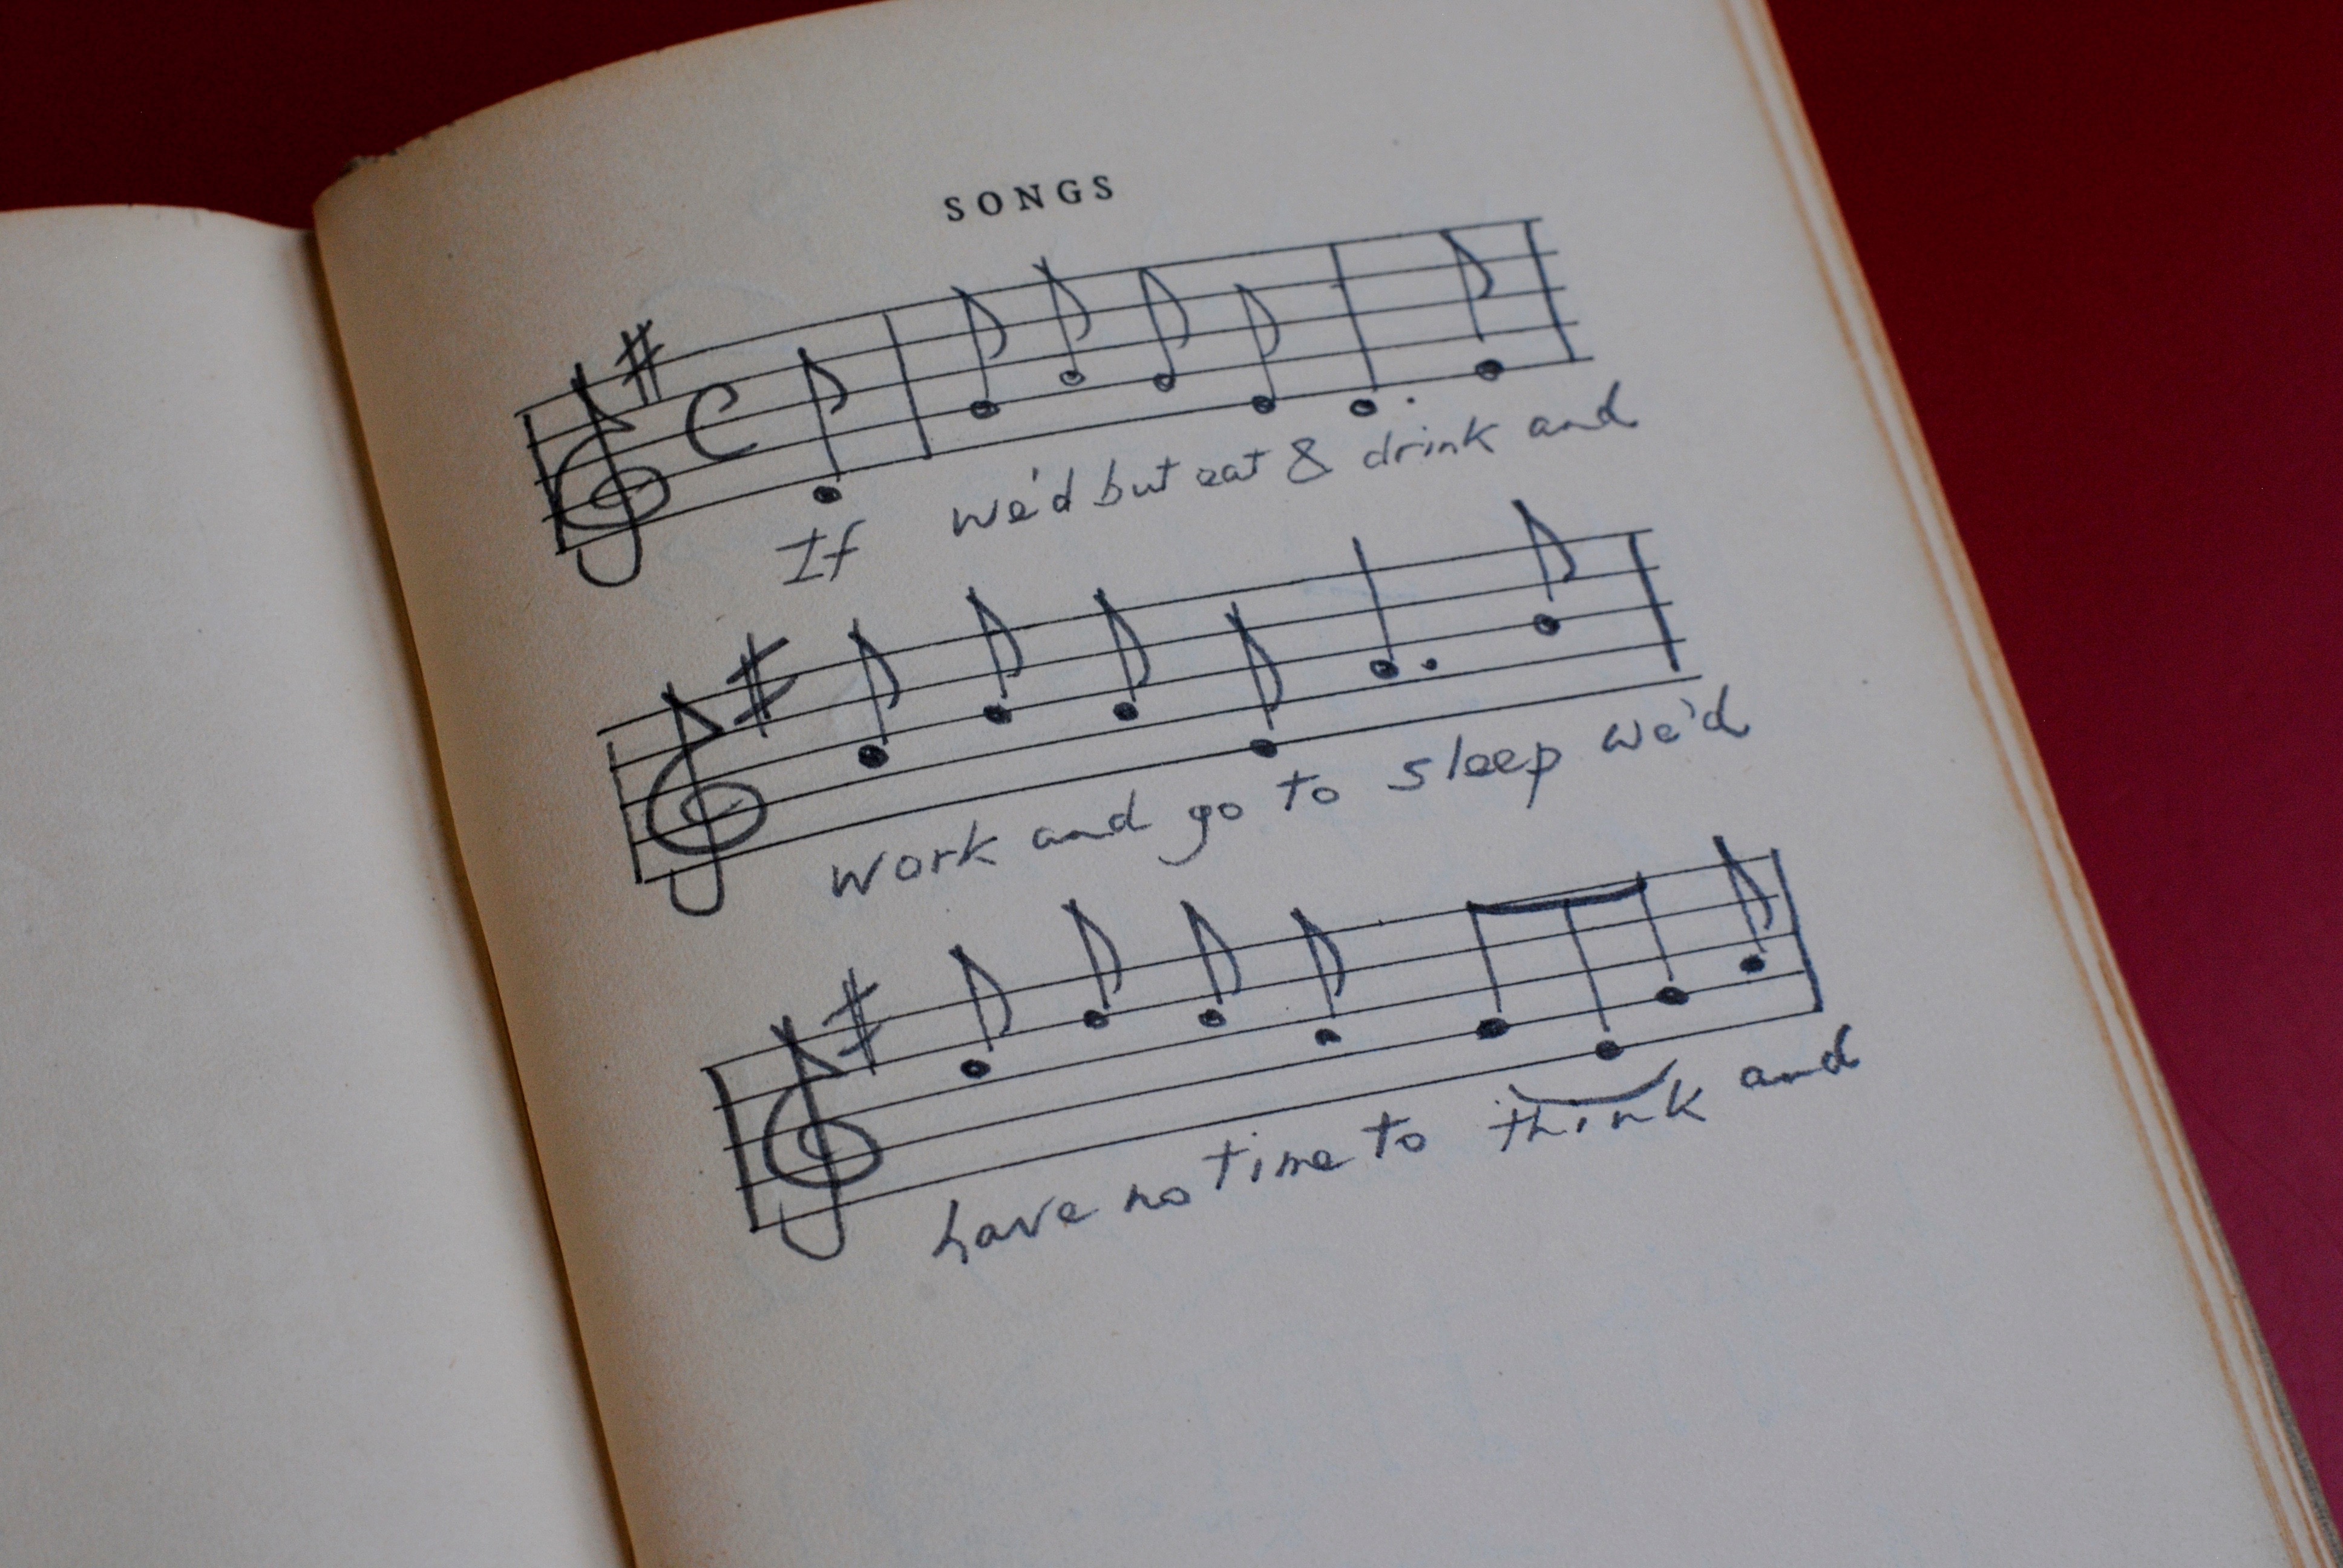 SONGS
If we'd but eat & drink and
work and go to sleep we'd
have no time to think and